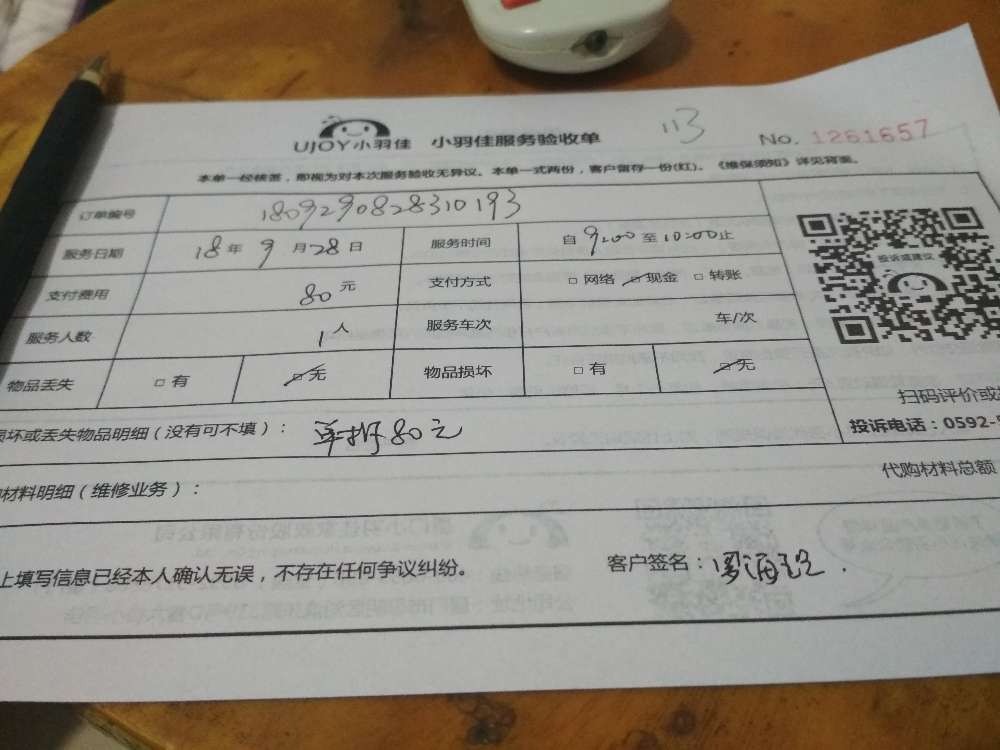 UJOY小羽佳 小羽佳服务验收单 113 No. 1261657
本单一经核签，即视为对本次服务验收无异议。本单一式两份，客户留存一份(红)。《维保须知》详见背面。
订单编号 1809290828310193
服务日期 18年9月28日 服务时间 自9:00至10:00止
支付费用 80元 支付方式 □网络 □现金 □转账
服务人数 1人 服务车次 车/次
物品丢失 □有 □无 物品损坏 □有 □无
投诉或建议
扫码评价或
投诉电话：0592-
损坏或丢失物品明细（没有可不填）： 80元
代购材料总额
材料明细（维修业务）：
上填写信息已经本人确认无误，不存在任何争议纠纷。 客户签名：